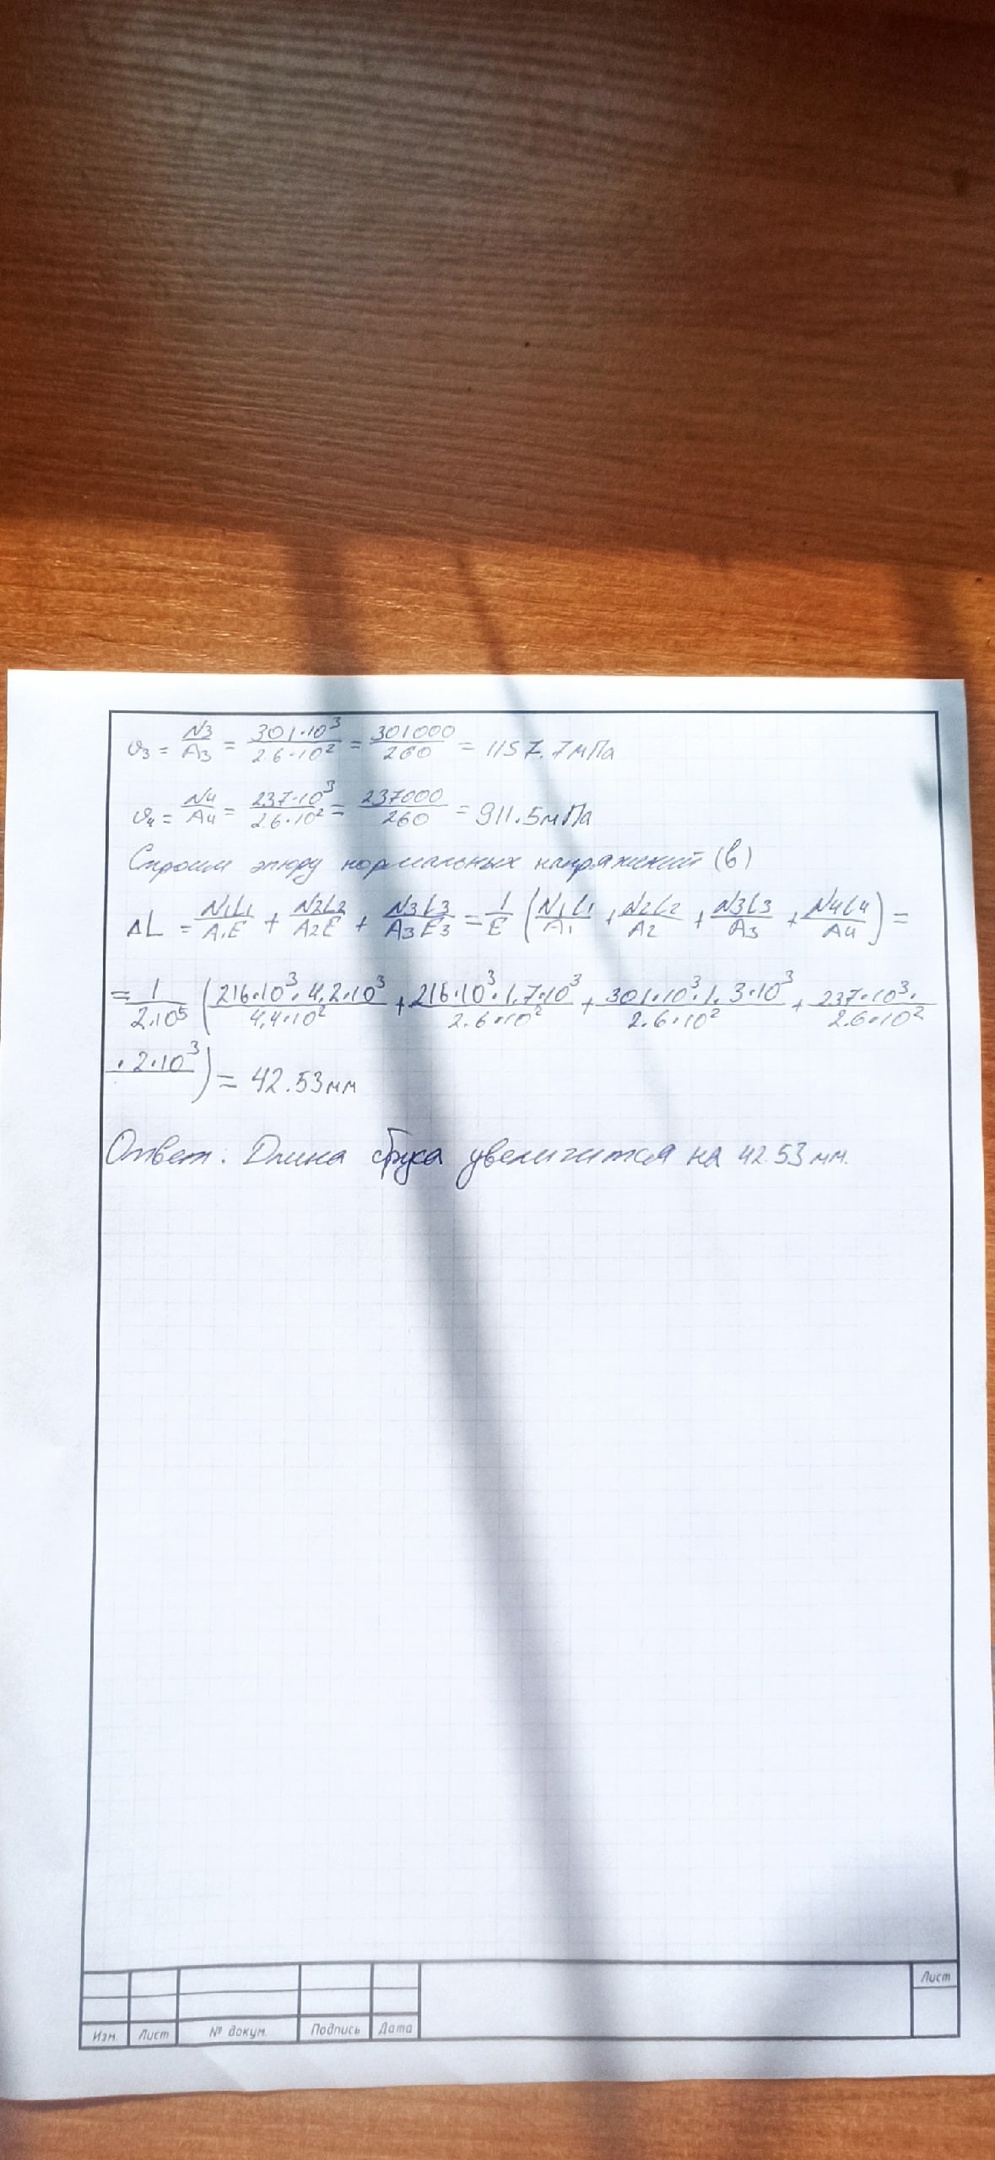 σ₃ = N₃/A₃ = 301·10³/2.6·10² = 301000/260 = 1157.7мПа
σ₄ = N₄/A₄ = 237·10³/2.6·10² = 237000/260 = 911.5мПа
Строим эпюру нормальных напряжений (в)
ΔL = N₁L₁/A₁E + N₂L₂/A₂E + N₃L₃/A₃E₃ = 1/E (N₁L₁/A₁ + N₂L₂/A₂ + N₃L₃/A₃ + N₄L₄/A₄) =
= 1/2·10⁵ (216·10³·4.2·10³/4.4·10² + 216·10³·1.7·10³/2.6·10² + 301·10³·1.3·10³/2.6·10² + 237·10³·/2.6·10²
·2·10³) = 42.53мм
Ответ: Длина бруса увеличится на 42.53мм.
Лист
Изм. Лист № докум. Подпись Дата